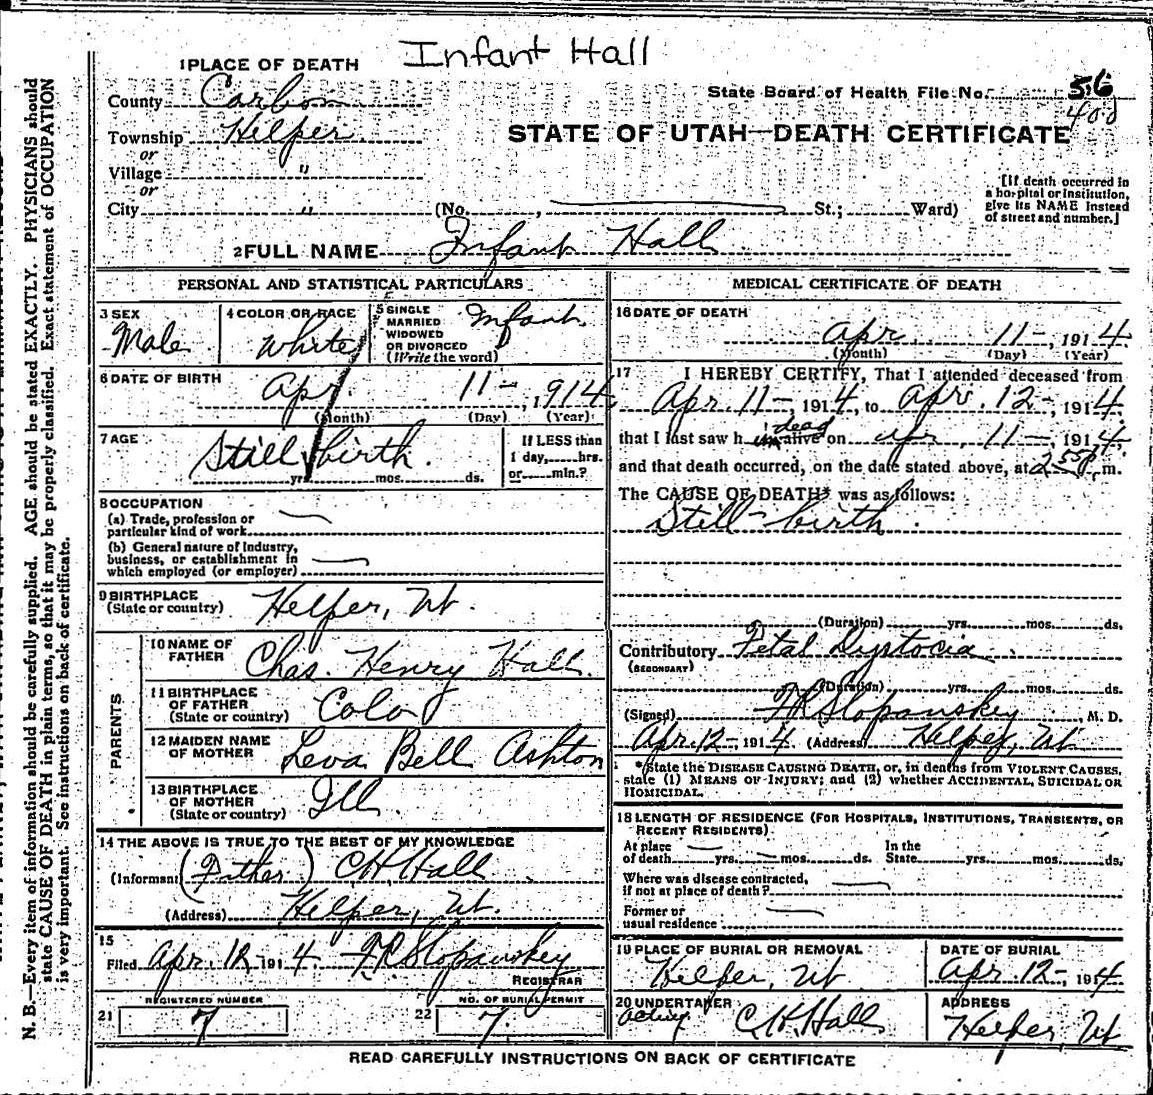 Infant Hall
1 PLACE OF DEATH
County Carbon
State Board of Health File No. 56
400
Township Helper
STATE OF UTAH—DEATH CERTIFICATE
or
Village "
or
City "
(No. , St.; Ward)
[If death occurred in
a hospital or institution,
give its NAME instead
of street and number.]
2 FULL NAME Infant Hall
PERSONAL AND STATISTICAL PARTICULARS
3 SEX
Male
4 COLOR OR RACE
White
5 SINGLE
MARRIED
WIDOWED
OR DIVORCED
(Write the word)
Infant
6 DATE OF BIRTH
Apr 11-, 1914
(Month) (Day) (Year)
7 AGE
Still birth.
yrs. mos. ds.
If LESS than
1 day, hrs.
or min.?
8 OCCUPATION
(a) Trade, profession or
particular kind of work
(b) General nature of Industry,
business, or establishment in
which employed (or employer)
9 BIRTHPLACE
(State or country)
Helper, Ut.
PARENTS
10 NAME OF
FATHER
Chas. Henry Hall.
11 BIRTHPLACE
OF FATHER
(State or country)
Colo
12 MAIDEN NAME
OF MOTHER
Leva Bell Ashton
13 BIRTHPLACE
OF MOTHER
(State or country)
Ill
14 THE ABOVE IS TRUE TO THE BEST OF MY KNOWLEDGE
(Informant (Father) C H Hall
(Address) Helper, Ut.
15
Filed Apr. 12 1914. F R Slopansky
REGISTRAR
REGISTERED NUMBER
21 7
NO. OF BURIAL PERMIT
22 7.
MEDICAL CERTIFICATE OF DEATH
16 DATE OF DEATH
Apr 11-, 1914
(Month) (Day) (Year)
17 I HEREBY CERTIFY, That I attended deceased from
Apr. 11-, 1914, to Apr. 12-, 1914,
that I last saw h im dead alive on Apr, 11-, 1914,
and that death occurred, on the date stated above, at 2 50 P. m.
The CAUSE OF DEATH* was as follows:
Still-birth.
(Duration) yrs. mos. ds.
Contributory Fetal Dystocia.
(SECONDARY)
(Duration) yrs. mos. ds.
(Signed) F R Slopansky, M. D.
Apr. 12-, 1914 (Address) Helper, Ut.
*State the DISEASE CAUSING DEATH, or, in deaths from VIOLENT CAUSES,
state (1) MEANS OF INJURY; and (2) whether ACCIDENTAL, SUICIDAL OR
HOMICIDAL.
18 LENGTH OF RESIDENCE (FOR HOSPITALS, INSTITUTIONS, TRANSIENTS, OR
RECENT RESIDENTS).
At place
of death yrs. mos. ds.
In the
State yrs. mos. ds.
Where was disease contracted,
if not at place of death?
Former or
usual residence
19 PLACE OF BURIAL OR REMOVAL
Helper, Ut.
DATE OF BURIAL
Apr. 12-, 1914
20 UNDERTAKER
acting. C. H. Hall
ADDRESS
Helper, Ut
READ CAREFULLY INSTRUCTIONS ON BACK OF CERTIFICATE
N. B.—Every item of information should be carefully supplied. AGE should be stated EXACTLY. PHYSICIANS should
state CAUSE OF DEATH in plain terms, so that it may be properly classified. Exact statement of OCCUPATION
is very important. See instructions on back of certificate.